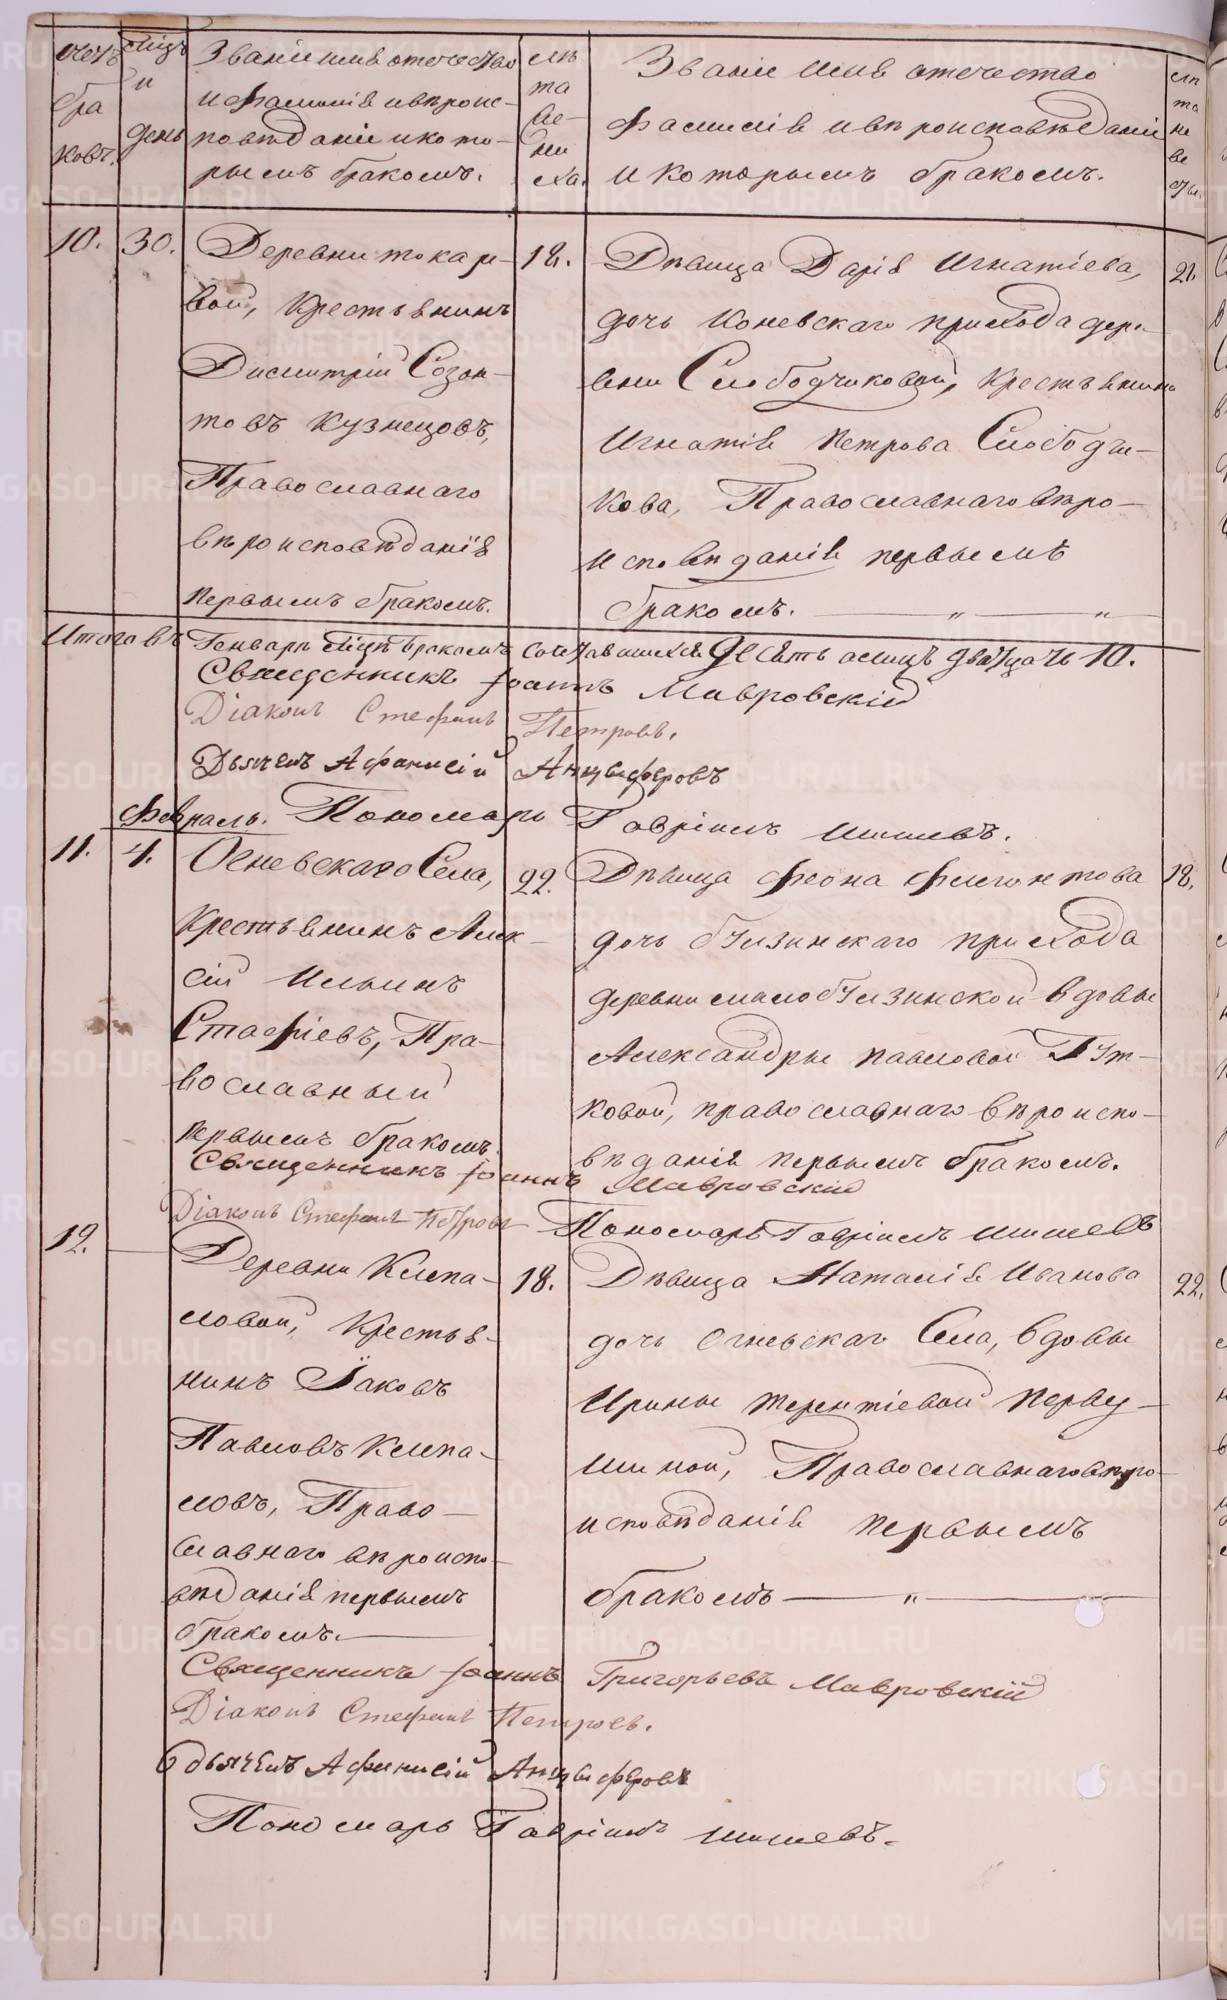 счетъ браковъ.
мѣсяцъ и день
Званіе имя отечество
и фамилія и вѣроис-
повѣданіи и кото-
рымъ бракомъ.
лѣта жениха.
Званіе имя отечество
фамилія и вѣроисповѣданіи
и которымъ бракомъ.
лѣта невесты.
10.
30.
Деревни токаре-
вой, Крестьянинъ
Димитрій Созон-
товъ Кузнецовъ,
Православнаго
вѣроисповѣданія
первымъ бракомъ.
18.
Дѣвица Дарія Игнатіева,
дочь Коневскаго прихода дере-
вни Слободчиковой, Крестьянина
Игнатія Петрова Слободчи-
кова, Православнаго вѣро-
исповѣданія первымъ
бракомъ. — „ — „ —
21.
Итого въ Генварѣ мѣсяцѣ бракомъ сочетавшихся десять а лицъ двадцать 10.
Священникъ Іоаннъ Мавровскій
Діаконъ Стефанъ Петровъ.
Дьячекъ Афанасій Анцыферовъ
Февраль. Пономарь Гавріилъ Шишевъ.
11.
4.
Огневскаго Села,
Крестьянинъ Алек-
сій Ильинъ
Стафіевъ, Пра-
вославный
первымъ бракомъ.
22.
Дѣвица Феона Флегонтова
дочь Булзинскаго прихода
деревни малобулзинской вдовы
Александры Павловой Гут-
ковой, православнаго вѣроиспо-
вѣданія первымъ бракомъ.
18.
Священникъ Іоаннъ Мавровскій
Діаконъ Стефанъ Петровъ Пономарь Гавріилъ Шишевъ
12.
Деревни Клепа-
ловой, Крестья-
нинъ Іаковъ
Павловъ Клепа-
ловъ, Право-
славнаго вѣроиспо-
вѣданія первымъ
бракомъ.
18.
Дѣвица Наталія Иванова
дочь Огневскаго Села, вдовы
Ирины Терентіевой Перву-
шиной, Православнаго вѣро-
исповѣданія первымъ
бракомъ — „ —
22.
Священникъ Іоаннъ Григорьевъ Мавровскій
Діаконъ Стефанъ Петровъ.
дьячекъ Афанасій Анцыферовъ
Пономарь Гавріилъ Шишевъ.
METRIKI.GASO-URAL.RU